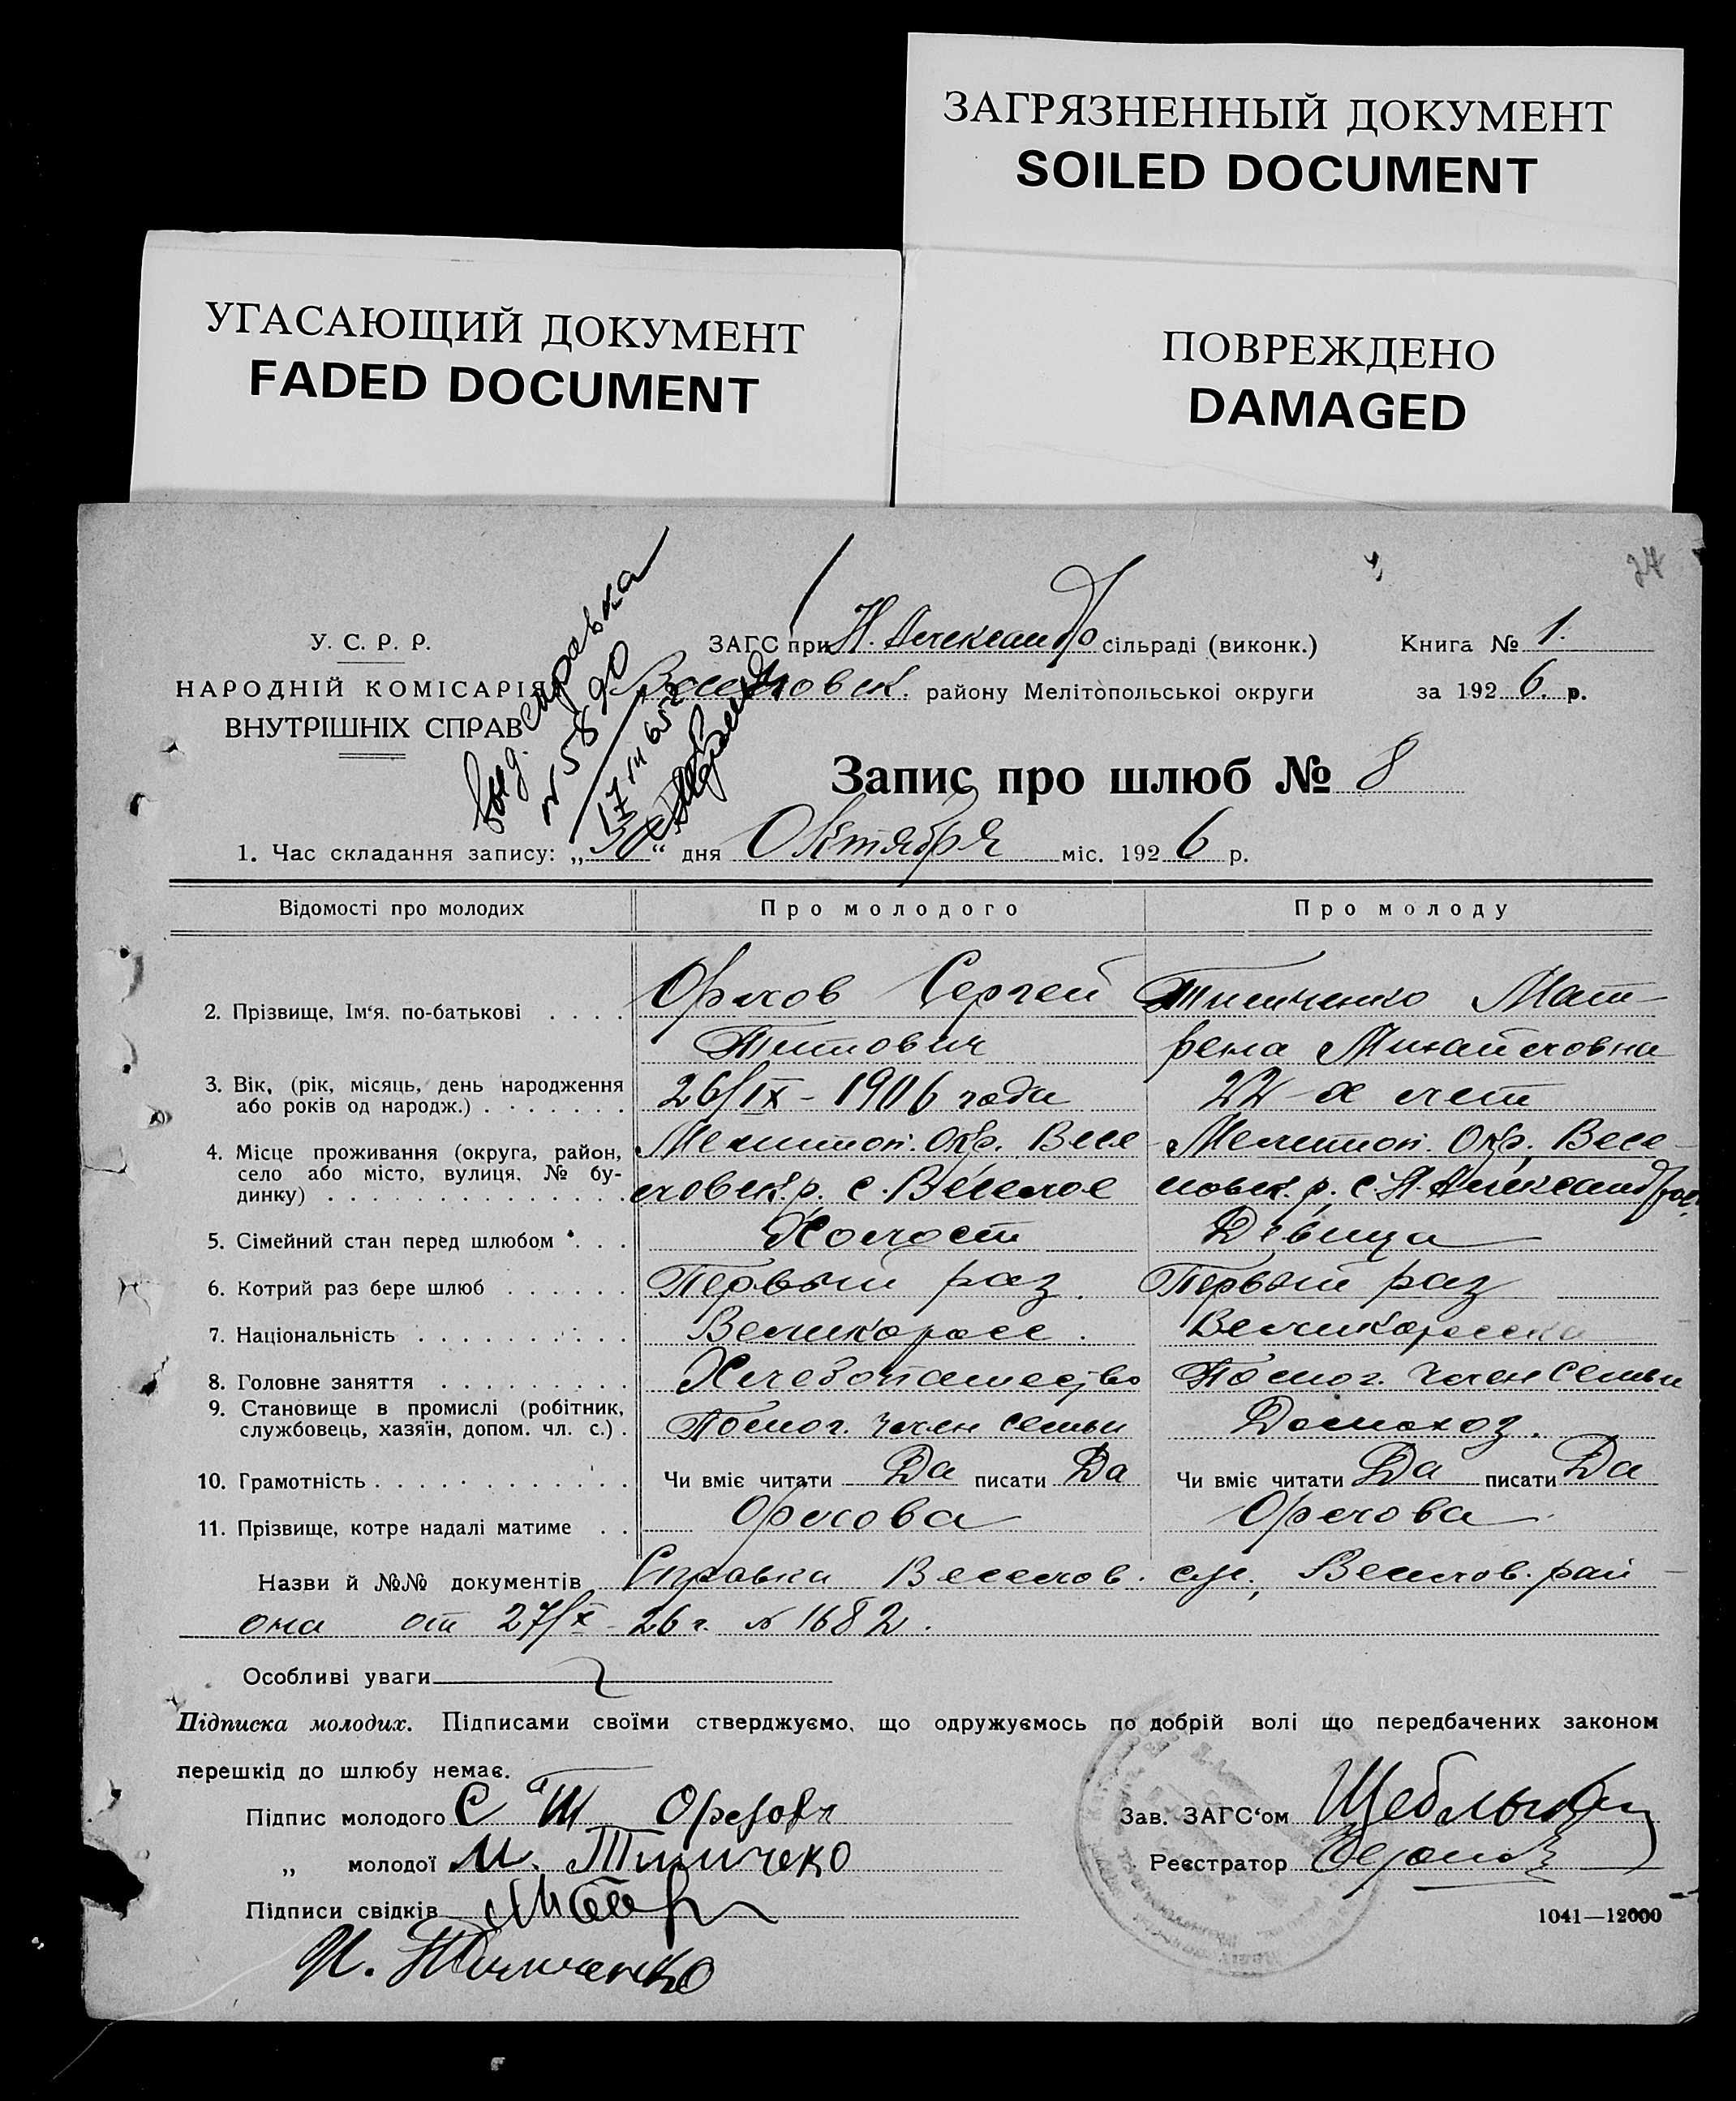 ЗАГРЯЗНЕННЫЙ ДОКУМЕНТ
SOILED DOCUMENT
УГАСАЮЩИЙ ДОКУМЕНТ
FADED DOCUMENT
ПОВРЕЖДЕНО
DAMAGED
У. С. Р. Р.
НАРОДНІЙ КОМІСАРІЯ
ВНУТРІШНІХ СПРАВ
справка
№ 5890
ЗАГС при Н. Александро сільраді (виконк.) Книга № 1.
Веселовск. району Мелітопольської округи за 192 6. р.
Запис про шлюб № 8
1. Час складання запису: „ 30 “ дня Октября міс. 192 6 р.
Відомості про молодих Про молодого Про молоду
2. Прізвище, Ім‘я. по-батькові Орехов Сергей Титович Тимченко Матрена Михайловна
3. Вік, (рік, місяць, день народження або років од народж.) 26/IX - 1906 года 22-х лет
4. Місце проживання (округа, район, село або місто, вулиця, № будинку) Мелитоп. Окр. Веселовск. р. с. Веселое Мелитоп. Окр. Веселовск. р. с. Н. Александров.
5. Сімейний стан перед шлюбом Холост Девица
6. Котрий раз бере шлюб Первый раз. Первый раз
7. Національність Великоросс. Великоросска
8. Головне заняття Хлебопашество Помог. член семьи
9. Становище в промислі (робітник, службовець, хазяїн, допом. чл. с.) Помог. член семьи Домохоз.
10. Грамотність Чи вміє читати Да писати Да Чи вміє читати Да писати Да
11. Прізвище, котре надалі матиме Орехова Орехова
Назви й №№ документів Справка Веселов. с/с., Веселов. рай-
она от 27/X - 26 г. № 1682.
Особливі уваги
Підписка молодих. Підписами своїми стверджуємо, що одружуємось по добрій волі що передбачених законом
перешкід до шлюбу немає.
Підпис молодого С Т Орехов
Зав. ЗАГС‘ом
„ молодої М. Тимчеко
Реєстратор
Підписи свідків
1041—12000
Тимченко